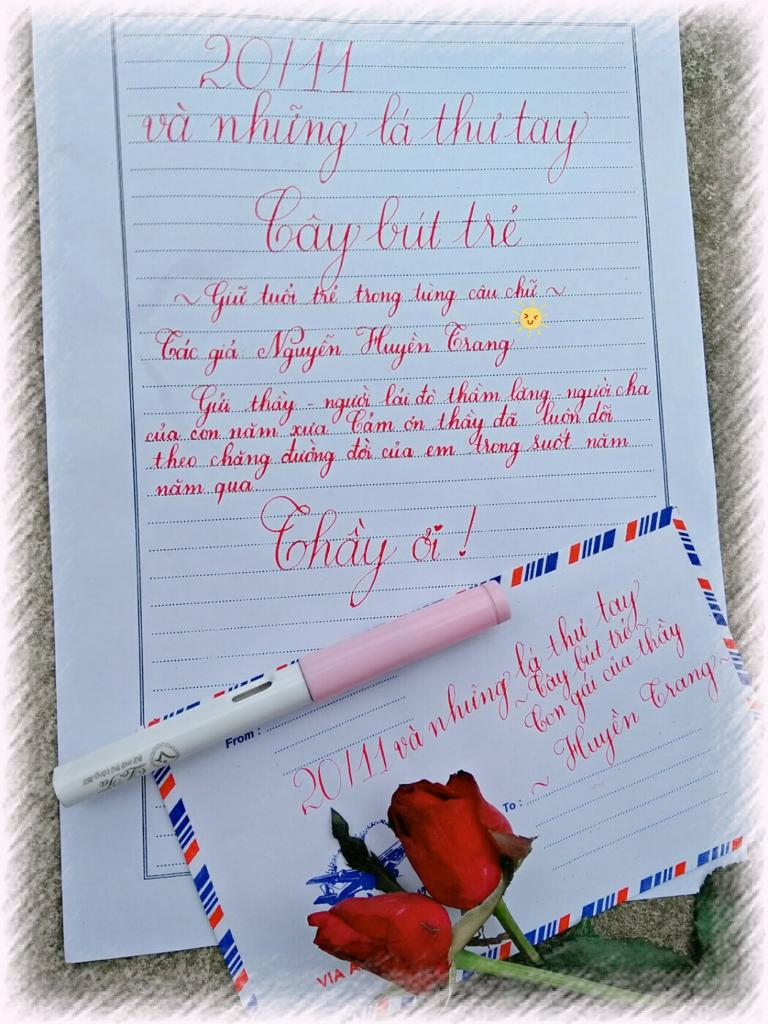 20/11
và những lá thư tay
Cây bút trẻ
~ Giữ tuổi trẻ trong từng câu chữ ~
Tác giả Nguyễn Huyền Trang
Gửi thầy - người lái đò thầm lặng - người cha
của con năm xưa. Cảm ơn thầy đã luôn dõi
theo chặng đường đời của em trong suốt năm
năm qua
Thầy ơi !
20/11 và những lá thư tay
~ Cây bút trẻ ~
Con gái của thầy
~ Huyền Trang ~
From :
To :
VIA A